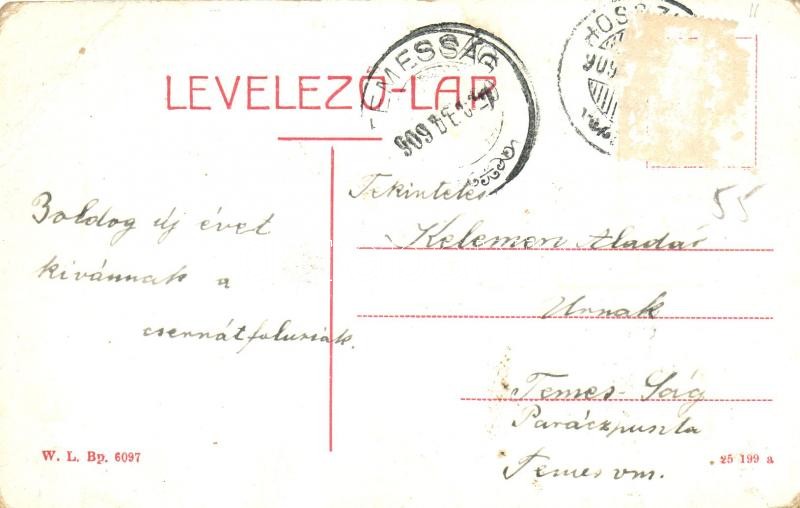 LEVELEZŐ-LAP
TEMESSÁG
909 DE
HOSSZ
909
55
Boldog új évet
kivánnak a
csernátfalusiak.
Tekintetes
Kelemen Aladár
Urnak
Temes-Ság
Paráczpuszta
Temesvm.
W. L. Bp. 6097
25 199 a